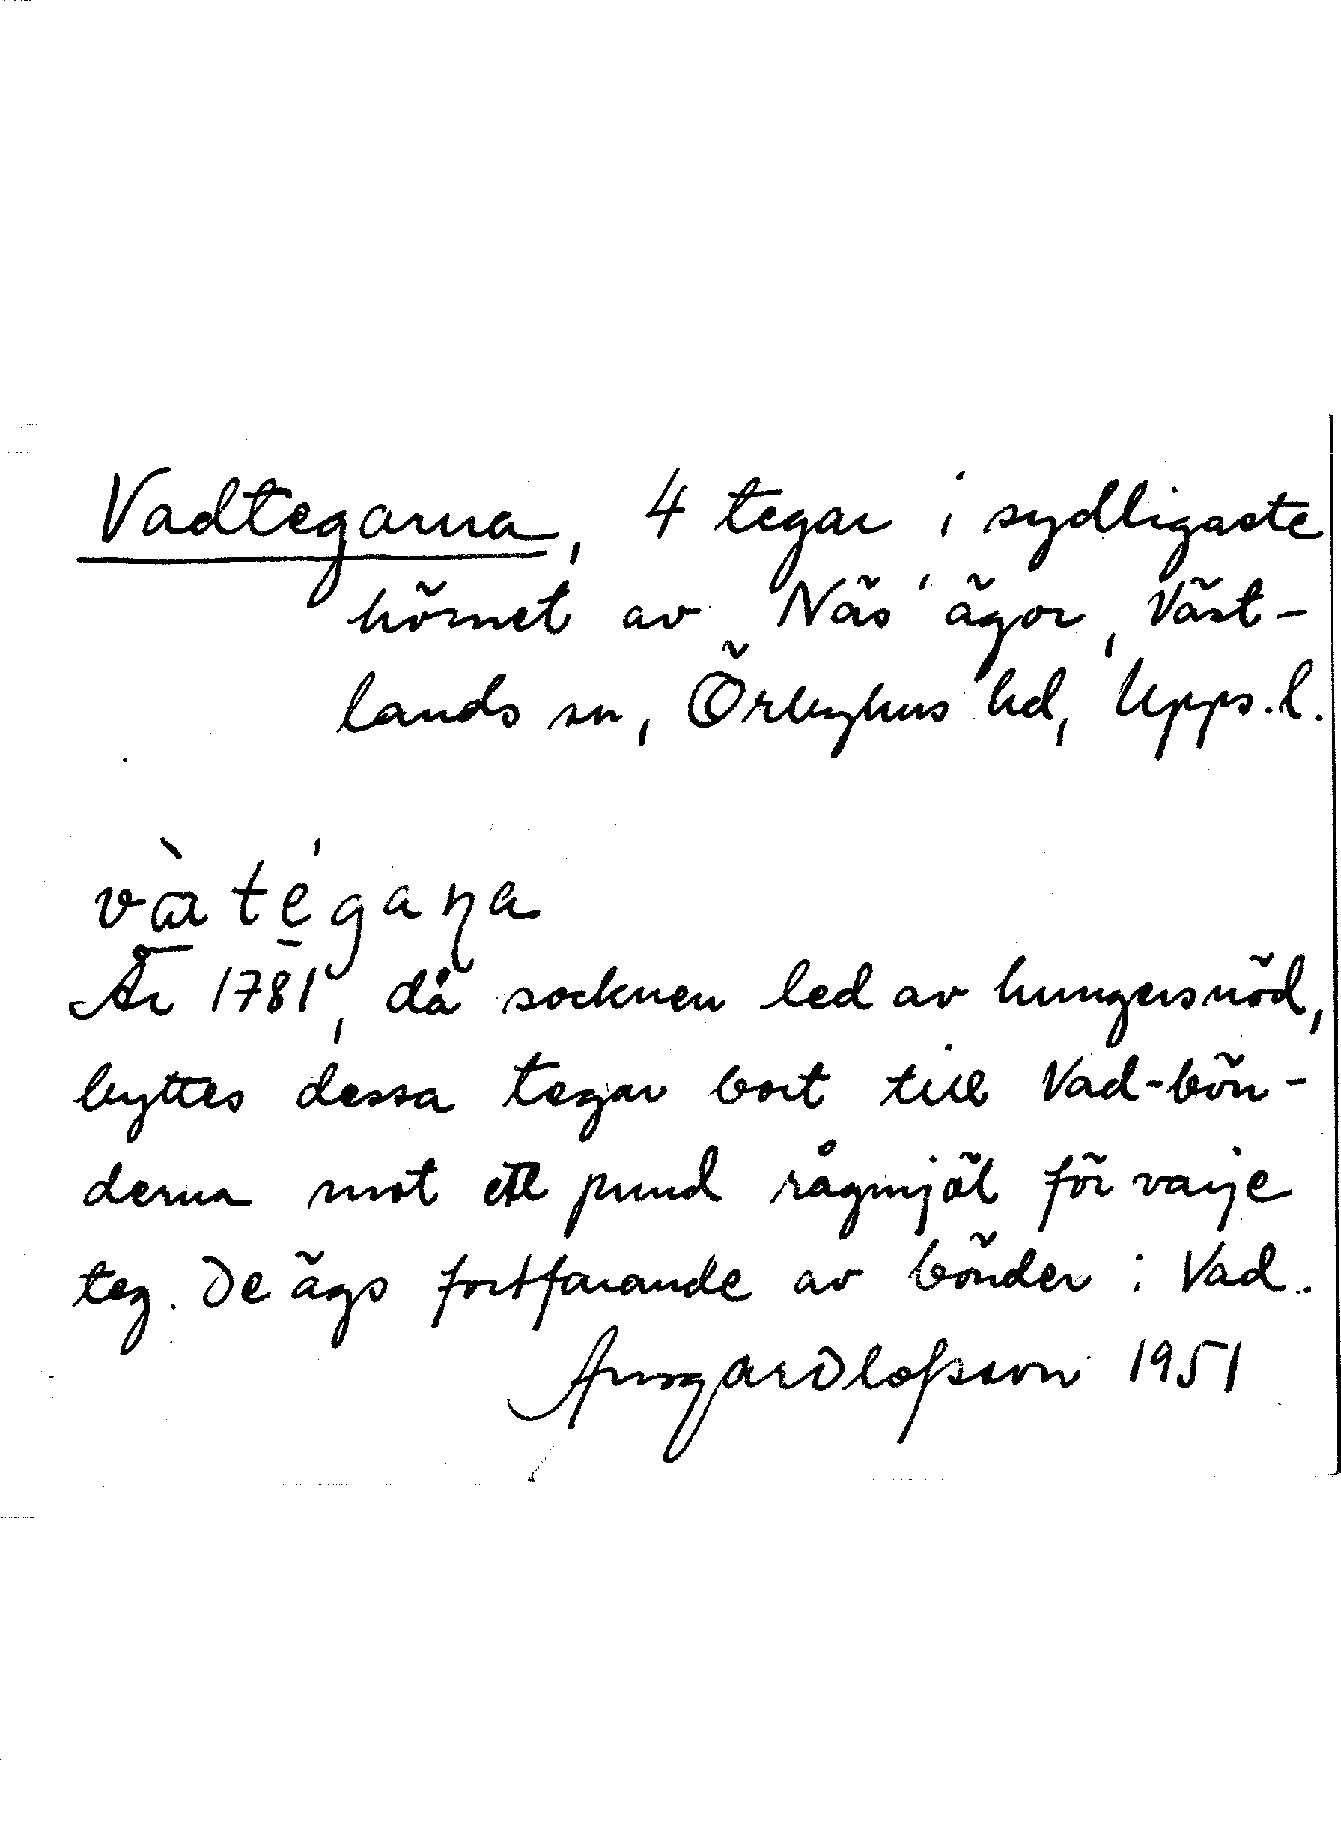 Vadtegarna, 4 tegar i sydligaste
hörnet av Näs' ägor, Väst-
lands sn, Örbyhus hd, Upps. l.
và̱té̱gaɳa
År 1781, då socknen led av hungersnöd,
byttes dessa tegar bort till Vad-bön-
derna mot ett pund rågmjöl för varje
teg. De ägs fortfarande av bönder i Vad.
Ansgar Olofsson 1951